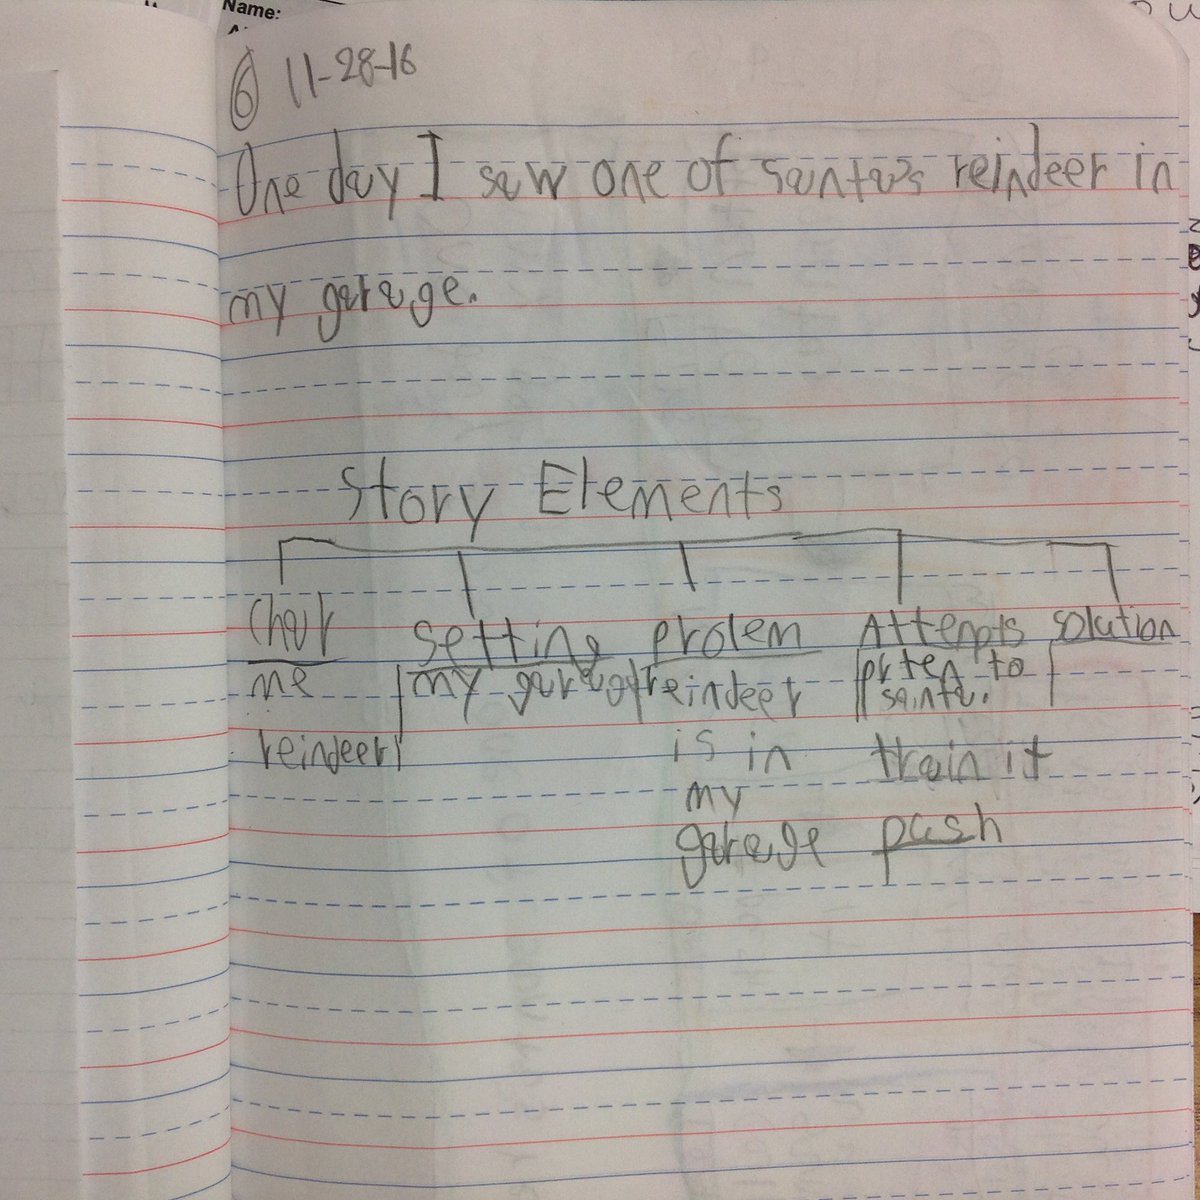 Name:
6 11-28-16
One day I saw one of santa's reindeer in
my garage.
Story Elements
Char setting prolem Attempts solution
me my garage reindeer prten to
santa.
reindeer is in train it
my
garage push